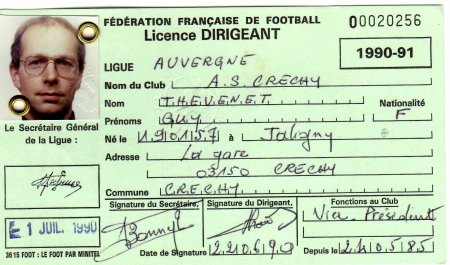 FÉDÉRATION FRANÇAISE DE FOOTBALL
Licence DIRIGEANT
00020256
1990-91
LIGUE AUVERGNE
Nom du Club A.S CRECHY
Nom T.H.E.V.E.N.E.T.
Prénoms GUY
Nationalité F
Né le 1.9.0.1.5.7 à Jaligny
Adresse La gare
03150 CRECHY
Commune C.R.E.C.H.Y
Le Secrétaire Général
de la Ligue :
E 1 JUIL. 1990
3615 FOOT : LE FOOT PAR MINITEL
Signature du Secrétaire,
Signature du Dirigeant,
Date de Signature 2.2.0.6.9.0
Fonctions au Club
Vice. Président
Depuis le 2.4.0.5.8.5